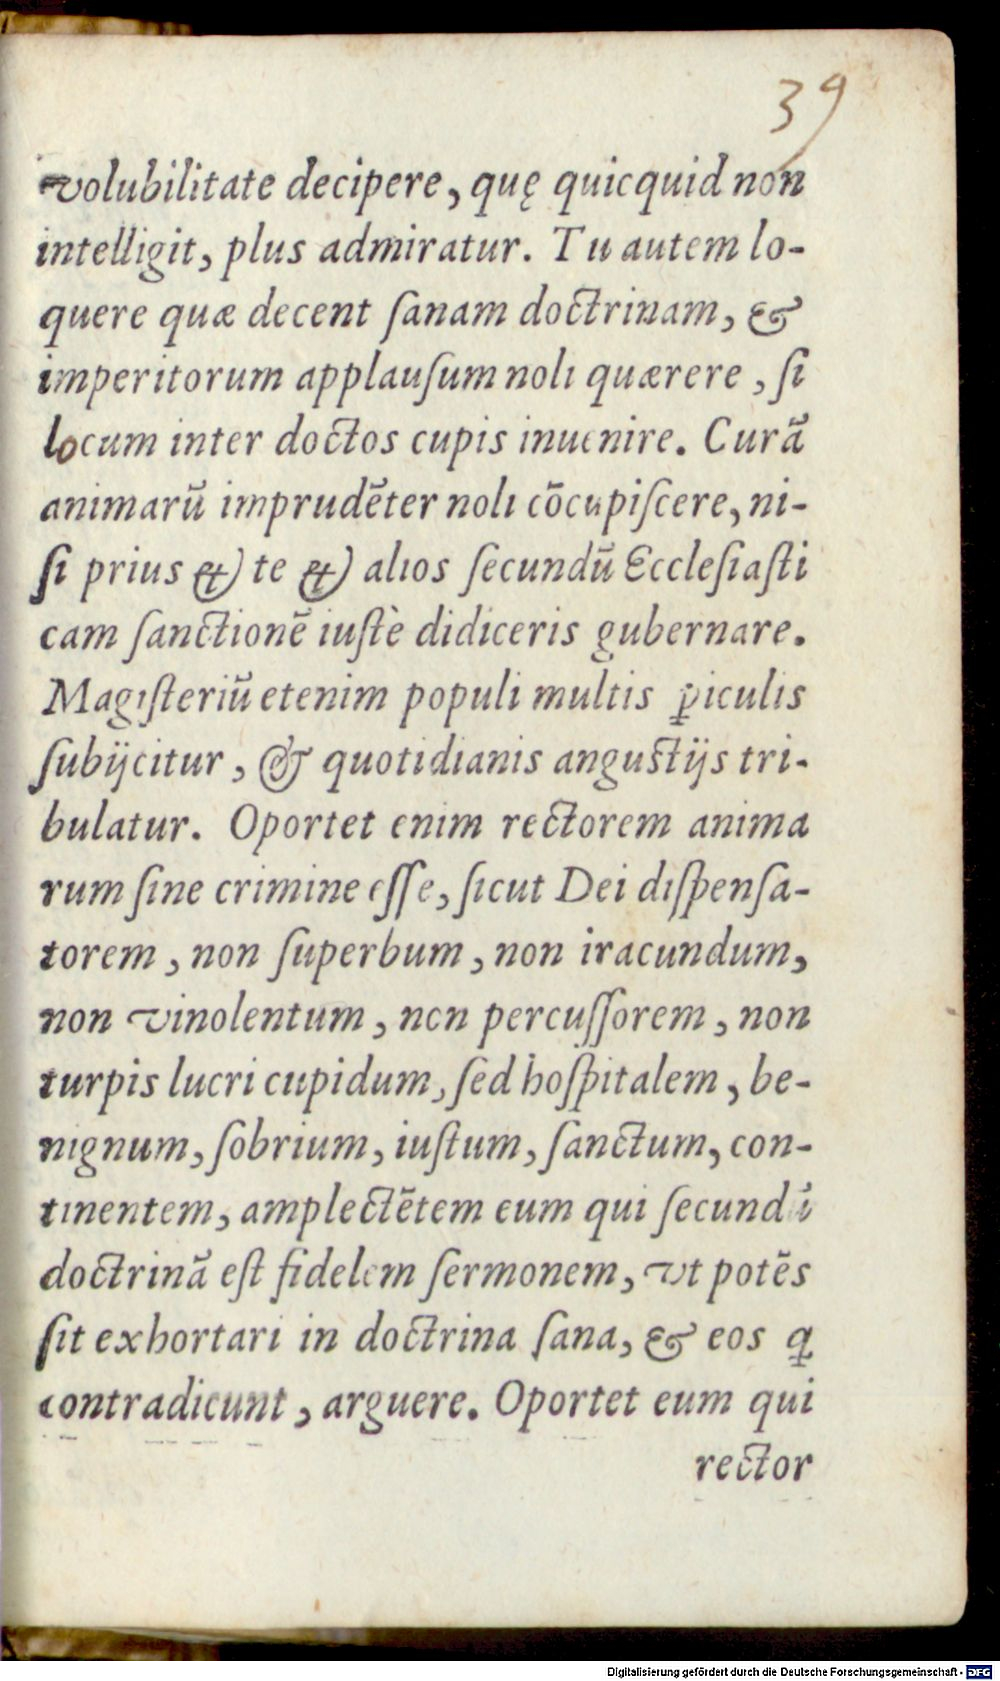 39
volubilitate decipere, quę quicquid non
intelligit, plus admiratur. Tu autem lo-
quere quæ decent ſanam doctrinam, &
imperitorum applauſum noli quærere, ſi
locum inter doctos cupis inuenire. Curã
animarũ imprudẽter noli cõcupiſcere, ni-
ſi prius & te & alios ſecundũ Eccleſiaſti
cam ſanctionẽ iuſtè didiceris gubernare.
Magiſteriũ etenim populi multis ꝑiculis
ſubijcitur, & quotidianis anguſtijs tri-
bulatur. Oportet enim rectorem anima
rum ſine crimine eſſe, ſicut Dei diſpenſa-
torem, non ſuperbum, non iracundum,
non vinolentum, non percuſſorem, non
turpis lucri cupidum, ſed hoſpitalem, be-
nignum, ſobrium, iuſtum, ſanctum, con-
tinentem, amplectẽtem eum qui ſecundũ
doctrinã eſt fidelem ſermonem, vt potẽs
ſit exhortari in doctrina ſana, & eos ꝗ
contradicunt, arguere. Oportet eum qui
rector
Digitalisierung gefördert durch die Deutsche Forschungsgemeinschaft - DFG